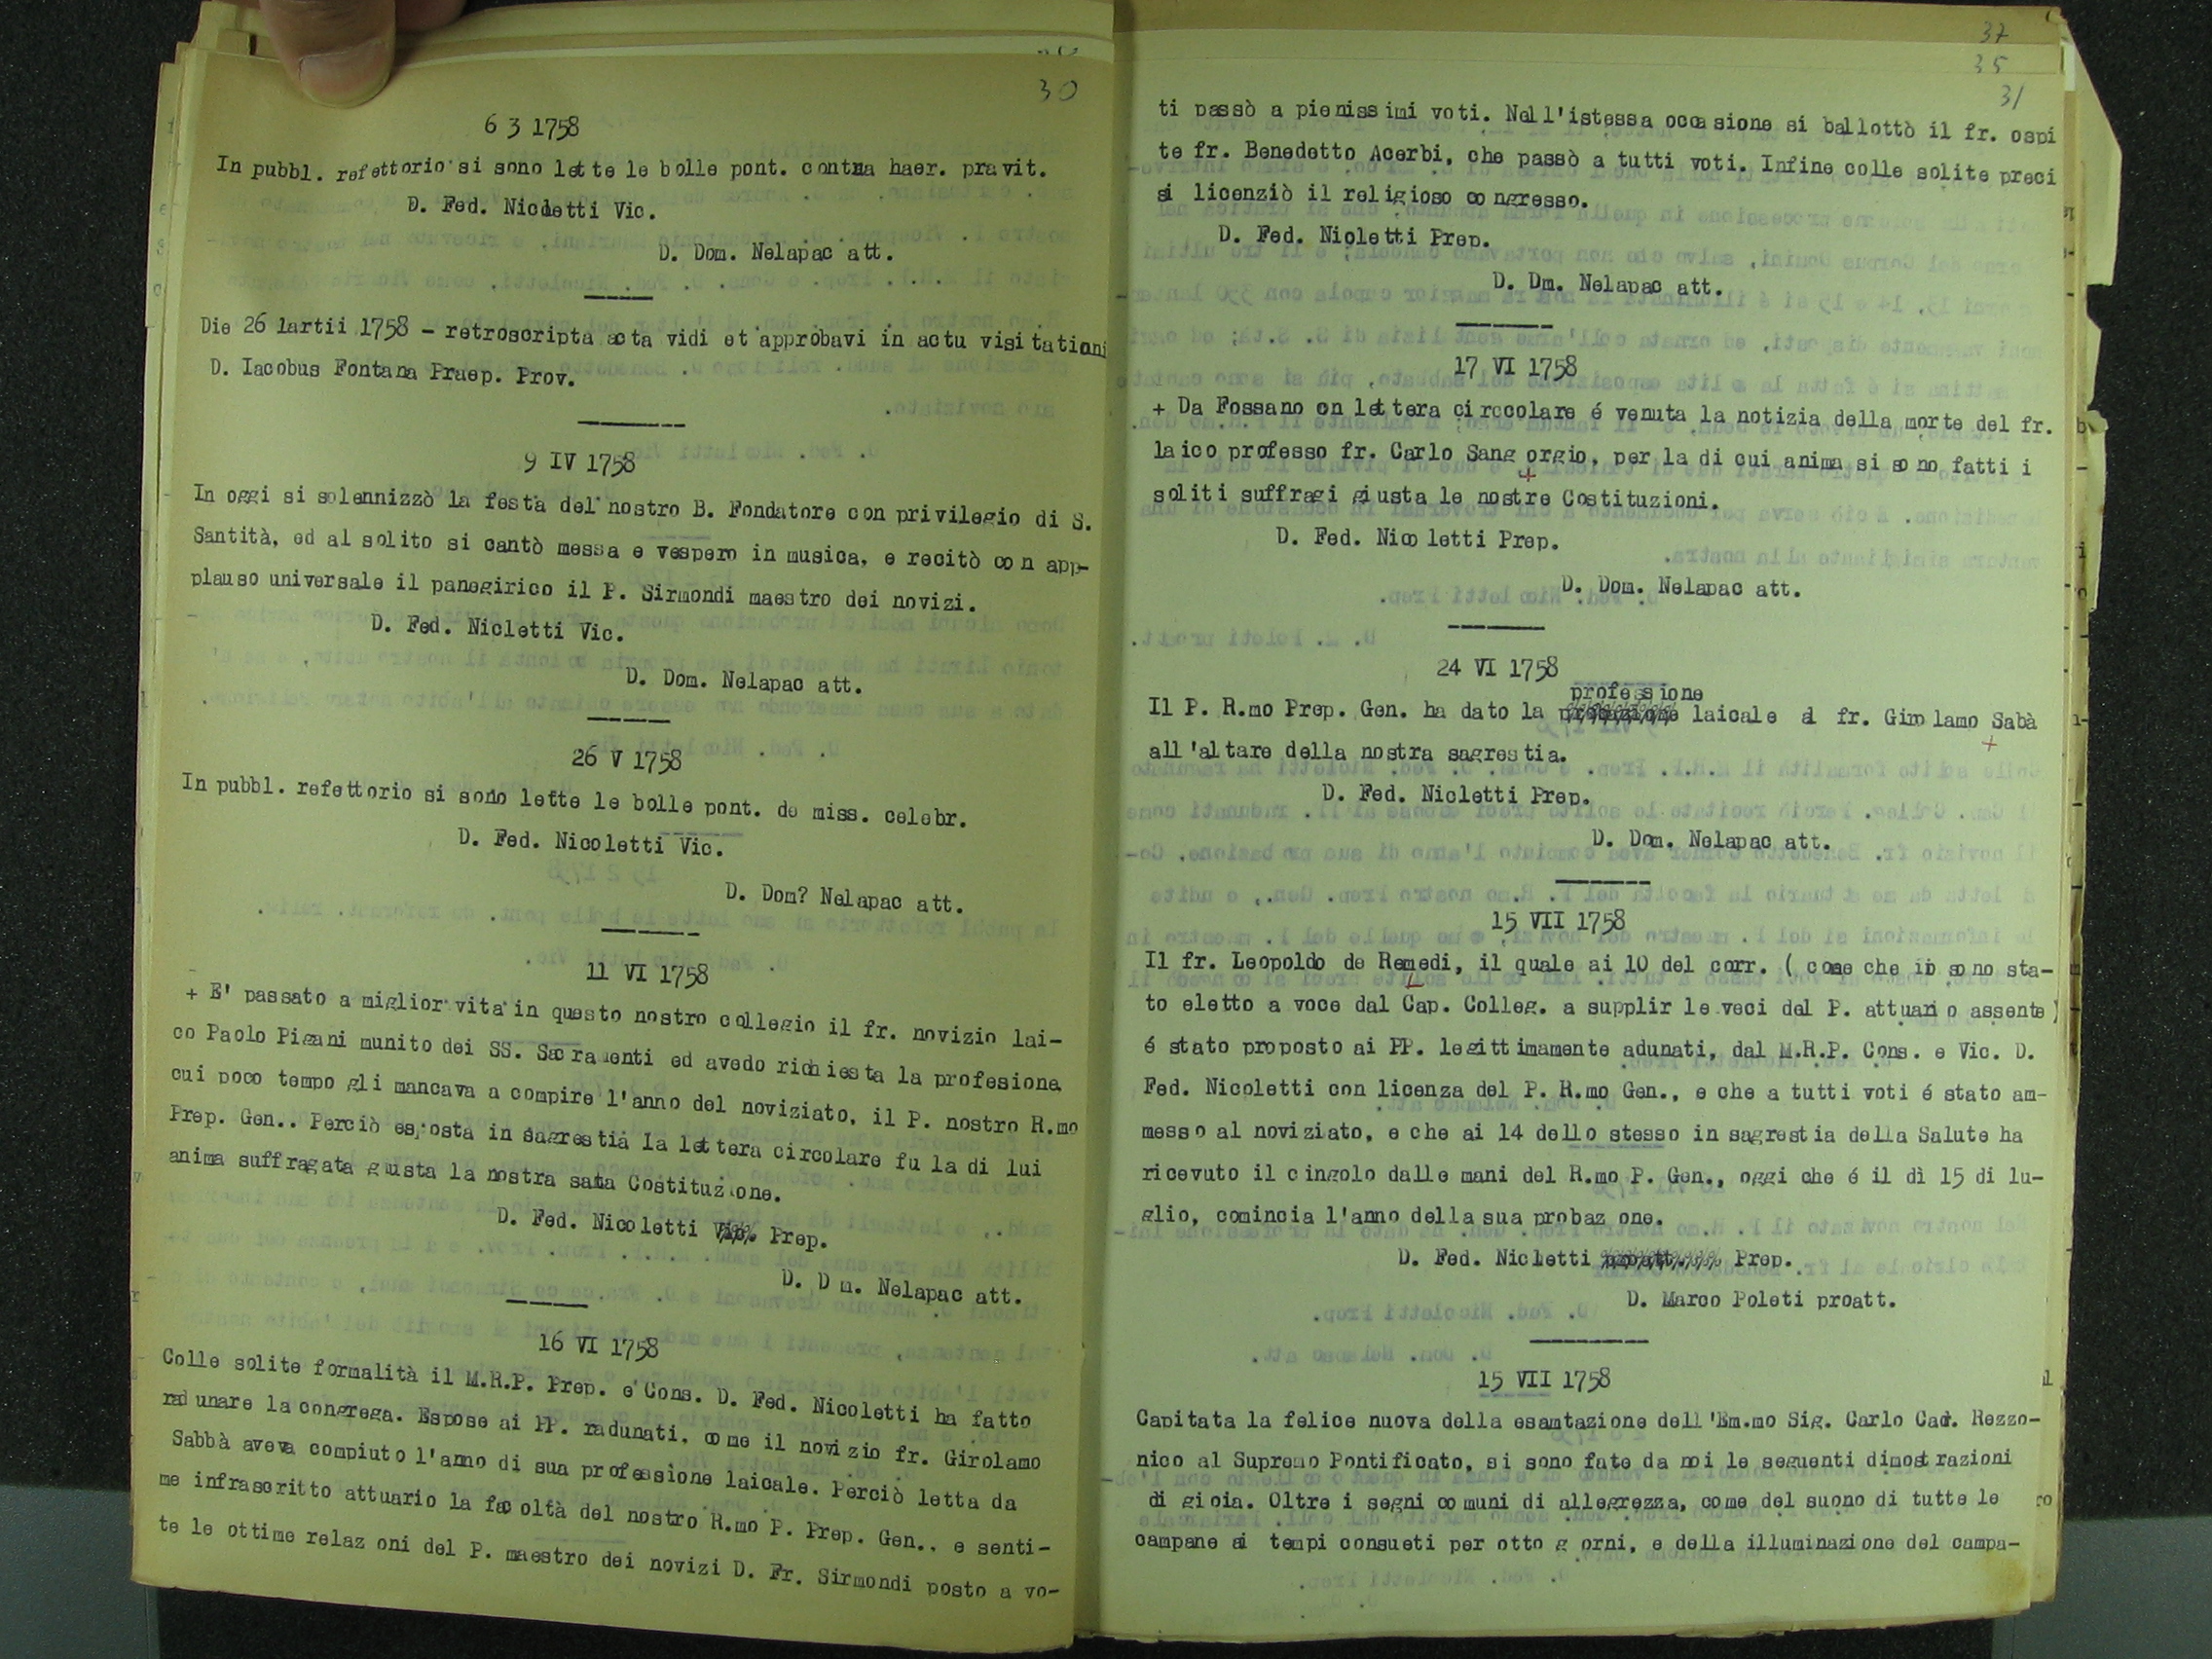 30
6 3 1758
In pubbl. refettorio si sono lette le bolle pont. contra haer. pravit.
D. Fed. Nicoletti Vic.
D. Dom. Nelapac att.
Die 26 lartii 1758 - retroscripta acta vidi et approbavi in actu visitationi
D. Iacobus Fontana Praep. Prov.
9 IV 1758
In oggi si solennizzò la festa del nostro B. Fondatore con privilegio di S.
Santità, ed al solito si cantò messa e vespero in musica, e recitò con app-
plauso universale il panegirico il P. Sirmondi maestro dei novizi.
D. Fed. Nicletti Vic.
D. Dom. Nelapac att.
26 V 1758
In pubbl. refettorio si sono lette le bolle pont. de miss. celebr.
D. Fed. Nicoletti Vic.
D. Dom? Nelapac att.
11 VI 1758
+ E' passato a miglior vita in questo nostro collegio il fr. novizio lai-
co Paolo Pigani munito dei SS. Sacramenti ed avedo richiesta la profesione
cui poco tempo gli mancava a compire l'anno del noviziato, il P. nostro R.mo
Prep. Gen.. Perciò esposta in sagrestia la lettera circolare fu la di lui
anima suffragata giusta la nostra santa Costituzione.
D. Fed. Nicoletti Vic. Prep.
D. D m. Nelapac att.
16 VI 1758
Colle solite formalità il M.R.P. Prep. e Cons. D. Fed. Nicoletti ha fatto
radunare la congrega. Espose ai PP. radunati, come il novizio fr. Girolamo
Sabbà aveva compiuto l'anno di sua professione laicale. Perciò letta da
me infrascritto attuario la facoltà del nostro R.mo P. Prep. Gen., e senti-
te le ottime relaz oni del P. maestro dei novizi D. Fr. Sirmondi posto a vo-
37
35
31
ti passò a pienissimi voti. Nell'istessa occasione si ballottò il fr. ospi
te fr. Benedetto Acerbi, che passò a tutti voti. Infine colle solite preci
si licenziò il religioso congresso.
D. Fed. Nioletti Prep.
D. Dm. Nelapac att.
17 VI 1758
+ Da Fossano on lettera circcolare é venuta la notizia della morte del fr.
laico professo fr. Carlo Sang orgio, per la di cui anima si sono fatti i
soliti suffragi giusta le nostre Costituzioni.
D. Fed. Nicoletti Prep.
D. Dom. Nelapac att.
24 VI 1758
professione
Il P. R.mo Prep. Gen. ha dato la probazione laicale al fr. Girolamo Sabà
all'altare della nostra sagrestia.
D. Fed. Nicletti Prep.
D. Dom. Nelapac att.
15 VII 1758
Il fr. Leopoldo de Remedi, il quale ai 10 del corr. ( come che io sono sta-
to eletto a voce dal Cap. Colleg. a supplir le veci del P. attuario assente)
é stato proposto ai PP. legittimamente adunati, dal M.R.P. Cons. e Vic. D.
Fed. Nicoletti con licenza del P. R.mo Gen., e che a tutti voti é stato am-
messo al noviziato, e che ai 14 dello stesso in sagrestia della Salute ha
ricevuto il cingolo dalle mani del R.mo P. Gen., oggi che é il dì 15 di lu-
glio, comincia l'anno della sua probaz one.
D. Fed. Nicletti proatt. Prep.
D. Marco Poleti proatt.
15 VII 1758
Capitata la felice nuova della esamtazione dell'Em.mo Sig. Carlo Card. Rezzo-
nico al Supremo Pontificato, si sono fate da noi le seguenti dimostrazioni
di gioia. Oltre i segni comuni di allegrezza, come del suono di tutte le
campane ai tempi consueti per otto g orni, e della illuminazione del campa-